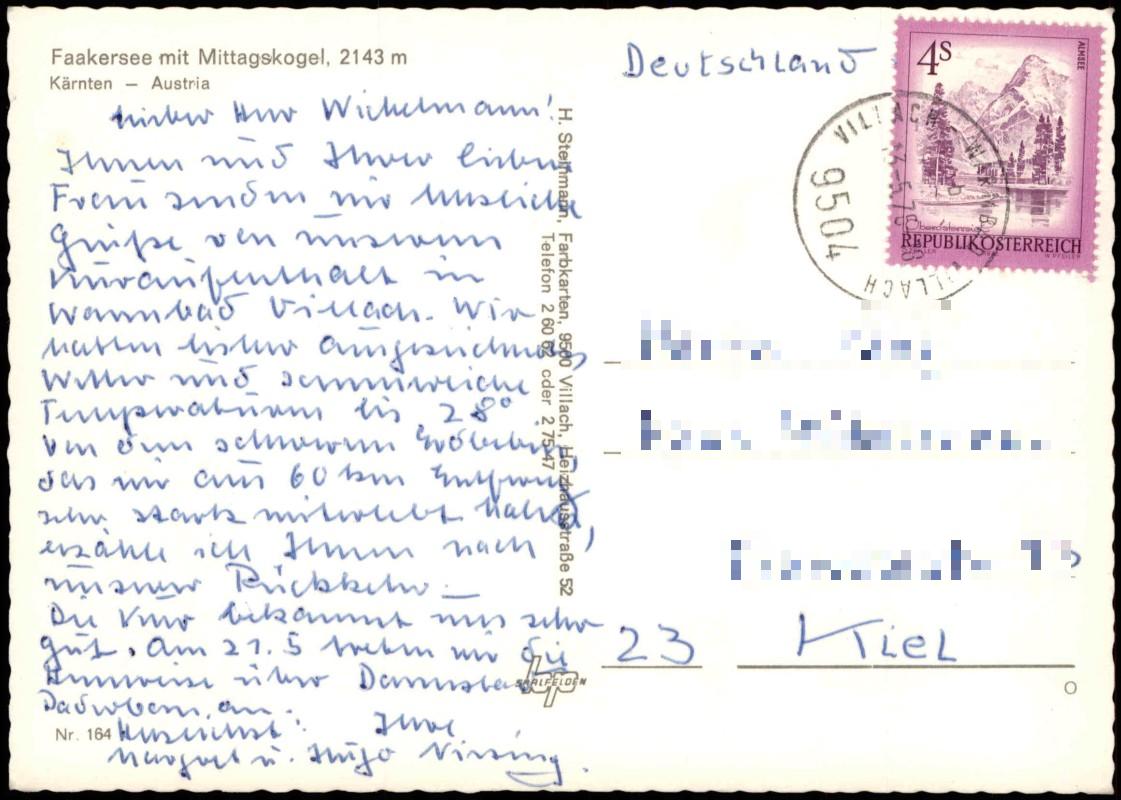 Faakersee mit Mittagskogel, 2143 m
Kärnten – Austria
Lieber Herr Wichelmann!
Ihnen und Ihrer lieben
Frau senden wir herzliche
Grüße von unserem
Kuraufenthalt in
Warmbad Villach. Wir
hatten bisher ausgezeichnetes
Wetter und sommerliche
Temperaturen bis 28°
Von dem schweren Erdbeben,
das wir aus 60 km
sehr stark miterlebt haben,
erzähle ich Ihnen nach
unserer Rückkehr.
Die Kur bekommt uns sehr
gut. Am 21.5 treten wir die
Heimreise über
an.
Herzlichst! Ihre
Margret u. Hugo
Nr. 164
H. Steinmann, Farbkarten, 9500 Villach, Heizhausstraße 52
Telefon 2 60 62 oder 2 75 47
SAALFELDEN
Deutschland
4S
ALMSEE
REPUBLIK ÖSTERREICH
9504
VILLACH - WARMBAD
VILLACH
23 Kiel